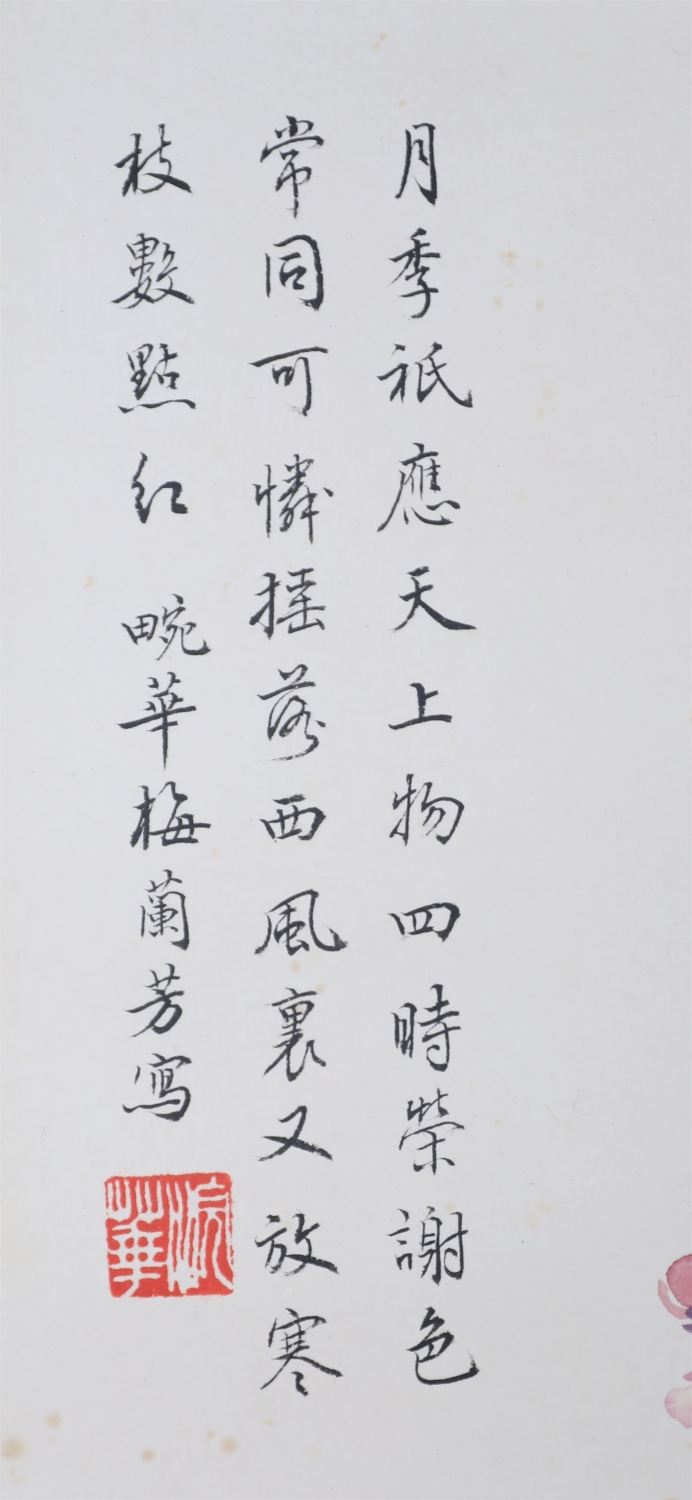 月季祇應天上物四時榮謝色
常同可憐搖落西風裏又放寒
枝數點紅 畹華梅蘭芳寫
浣華